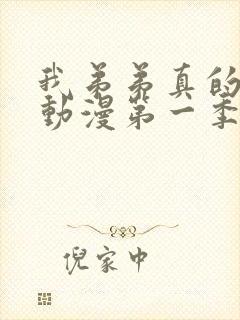 我弟弟真的
動漫第一季
倪家中